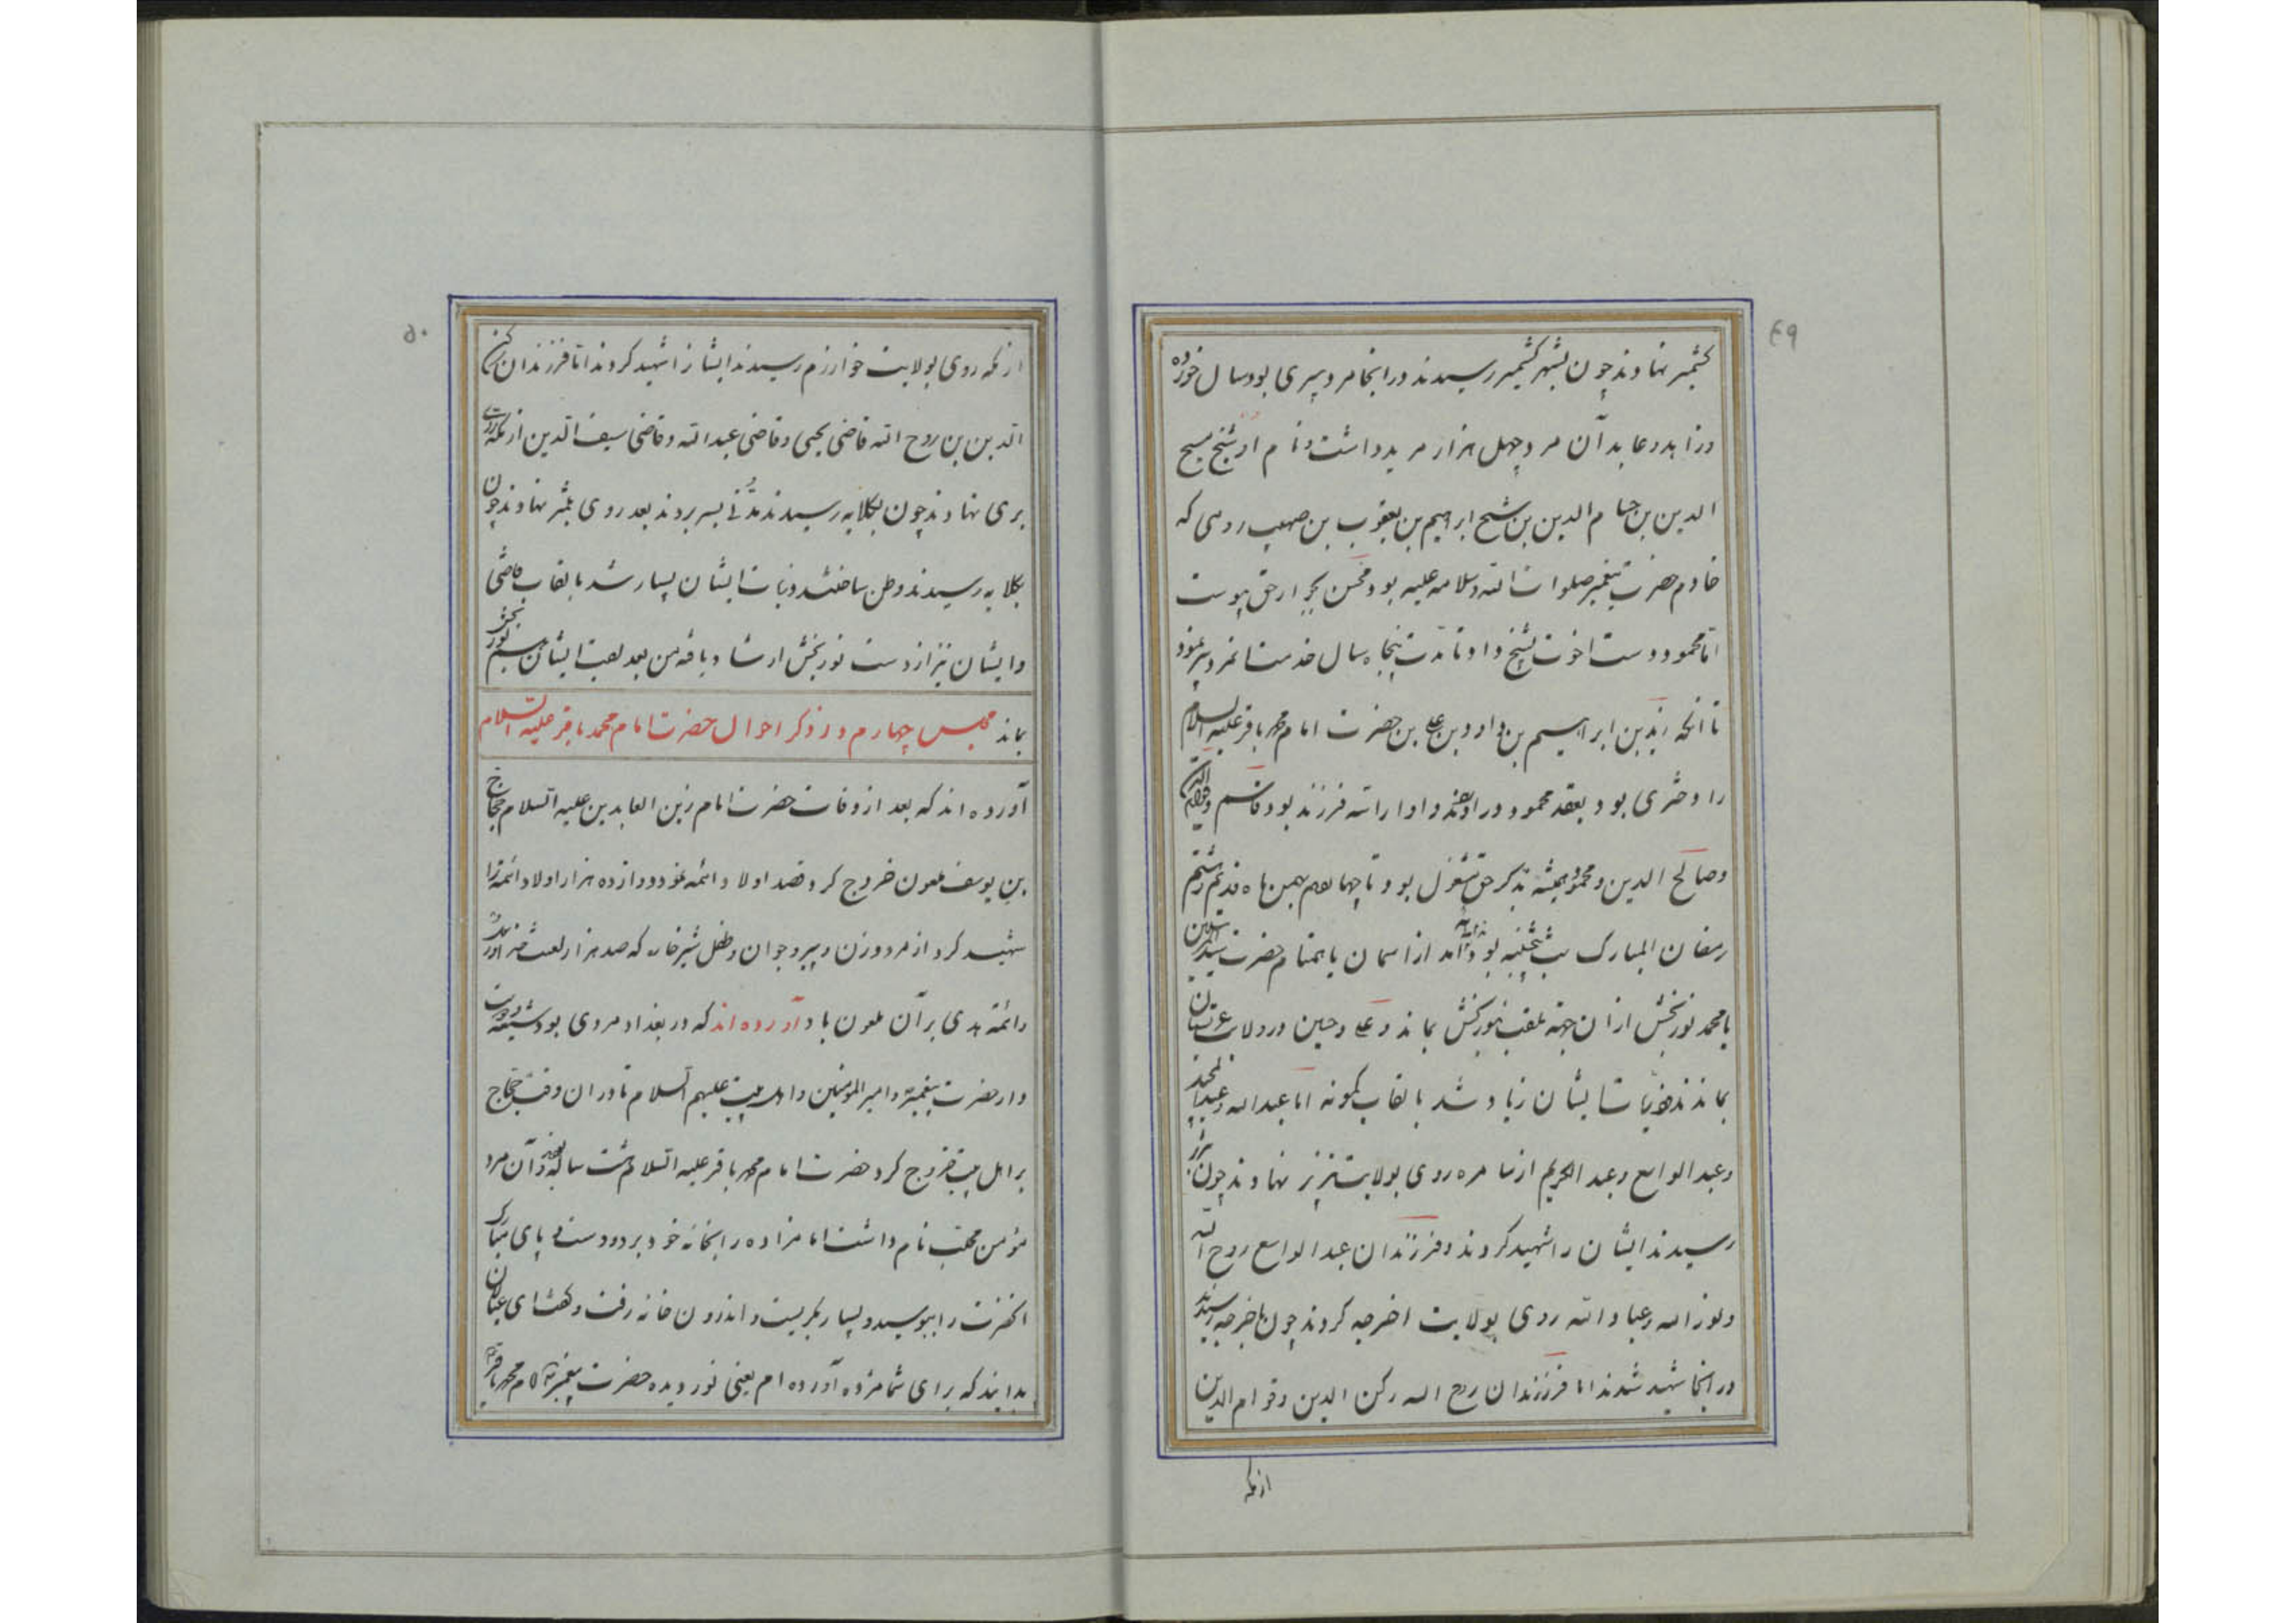 ۴۹
کشمیر نهادند چون بشهر کشمیر رسیدند در انجا مرد پیری بود سال خورده
و زاهد و عابد آن مرد چهل هزار مرید داشت و نام او شیخ مسیح
الدین بن حسام الدین بن شیخ ابراهیم بن یعقوب بن صهیب رومی که
خادم حضرت پیغمبر صلوات الله و سلامه علیه بود محسن بجوار حق پیوست
اما محمود دست اخوت بشیخ داد و تا مدت پنجاه سال خدمت نمود
تا آنکه زید بن ابراهیم بن داود بن علی بن حضرت امام محمد باقر علیه السلام
را دختری بود بعقد محمود در آوردند و او را سه فرزند بود قاسم و قوام الدین
و صالح الدین و محمود همیشه بذکر حق مشغول بود تا چهاردهم بهمن ماه قدیم ششم
رمضان المبارک شب پنجشنبه بود ندا آمد از اسمان یا همنام حضرت سید المرسلین
یا محمد نوربخش ازان جهة ملقب بنوربخش بماند و علی و حسین در ولایت عربستان
بماندند ذریات ایشان زیاد شد بالقاب کمونه اما عبدالله و عبدالمجید
و عبدالواسع و عبدالکریم از سامره روی بولایت تبریز نهادند چون بتبریز
رسیدند ایشان را شهید کردند و فرزندان عبدالواسع روح الله
و نورالله و عباد الله روی بولایت اخرجه کردند چون باخرجه رسیدند
در انجا شهید شدند اما فرزندان روح الله رکن الدین و قوام الدین
ازمکه
۵۰
ازمکه روی بولایت خوارزم رسیدند ایشانرا شهید کردند اما فرزندان رکن
الدین بن روح الله قاضی یحیی و قاضی عبدالله و قاضی سیف الدین ازمکه روی
بری نهادند چون بکلایه رسیدند مدتی بسر بردند بعد روی نهادند چون
بکلایه رسیدند وطن ساختند و نبات ایشان بسیار شد بالقاب قاضی
و ایشان نیز از دست نوربخش ارشاد یافته من بعد لقب ایشان نوربخش
بماند مجلس چهارم در ذکر احوال حضرت امام محمد باقر علیه السلام
آورده اند که بعد از وفات حضرت امام زین العابدین علیه السلام حجاج
بن یوسف ملعون خروج کرد قصد اولاد ائمه نمود دوازده هزار اولاد ائمه را
شهید کرد از مرد و زن و پیر و جوان و طفل شیرخاره که صد هزار لعنت
و ائمه هدی بر آن ملعون باد آورده اند که در بغداد مردی بود شیعه و دوست
دار حضرت پیغمبر و امیرالمؤمنین و اهل بیت علیهم السلام تا دران وقت حجاج
بر اهل بیت خروج کرد حضرت امام محمد باقر علیه السلام هشت ساله بود آن مرد
مؤمن محب نام داشت امامزاده را بخانه خود برد و دست و پای مبارک
انحضرت را ببوسید و بسیار بگریست و اندرون خانه رفت و گفت ای عیالان
بدانید که برای شما مژده آورده ام یعنی نور دیده حضرت پیغمبر امام محمد باقر